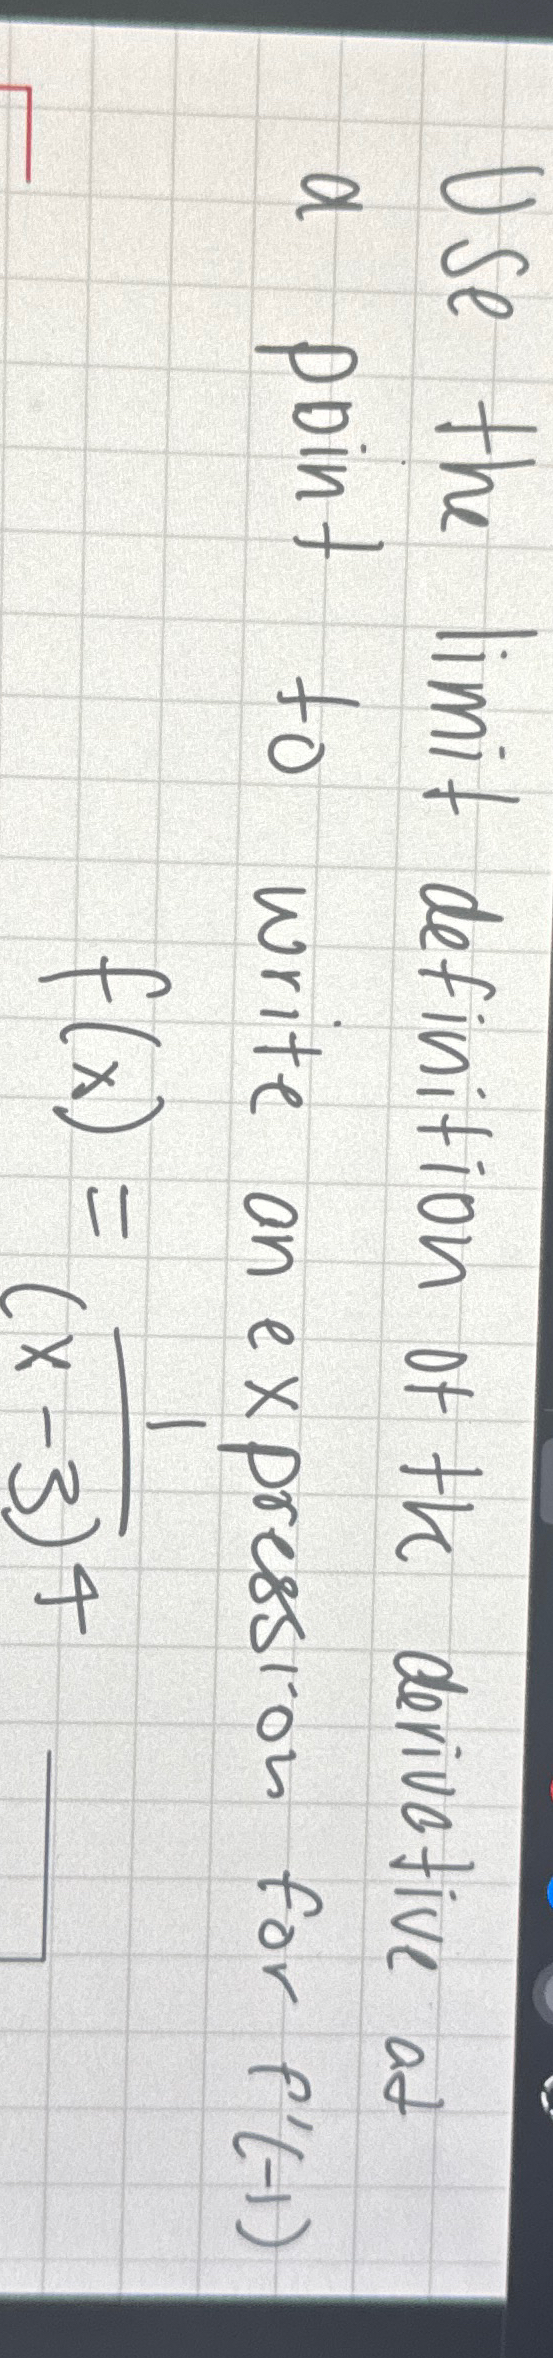 Use the limit definition of the derivative at
a point to write an expression for f'(-1)
f(x) = 1/(x-3)^4